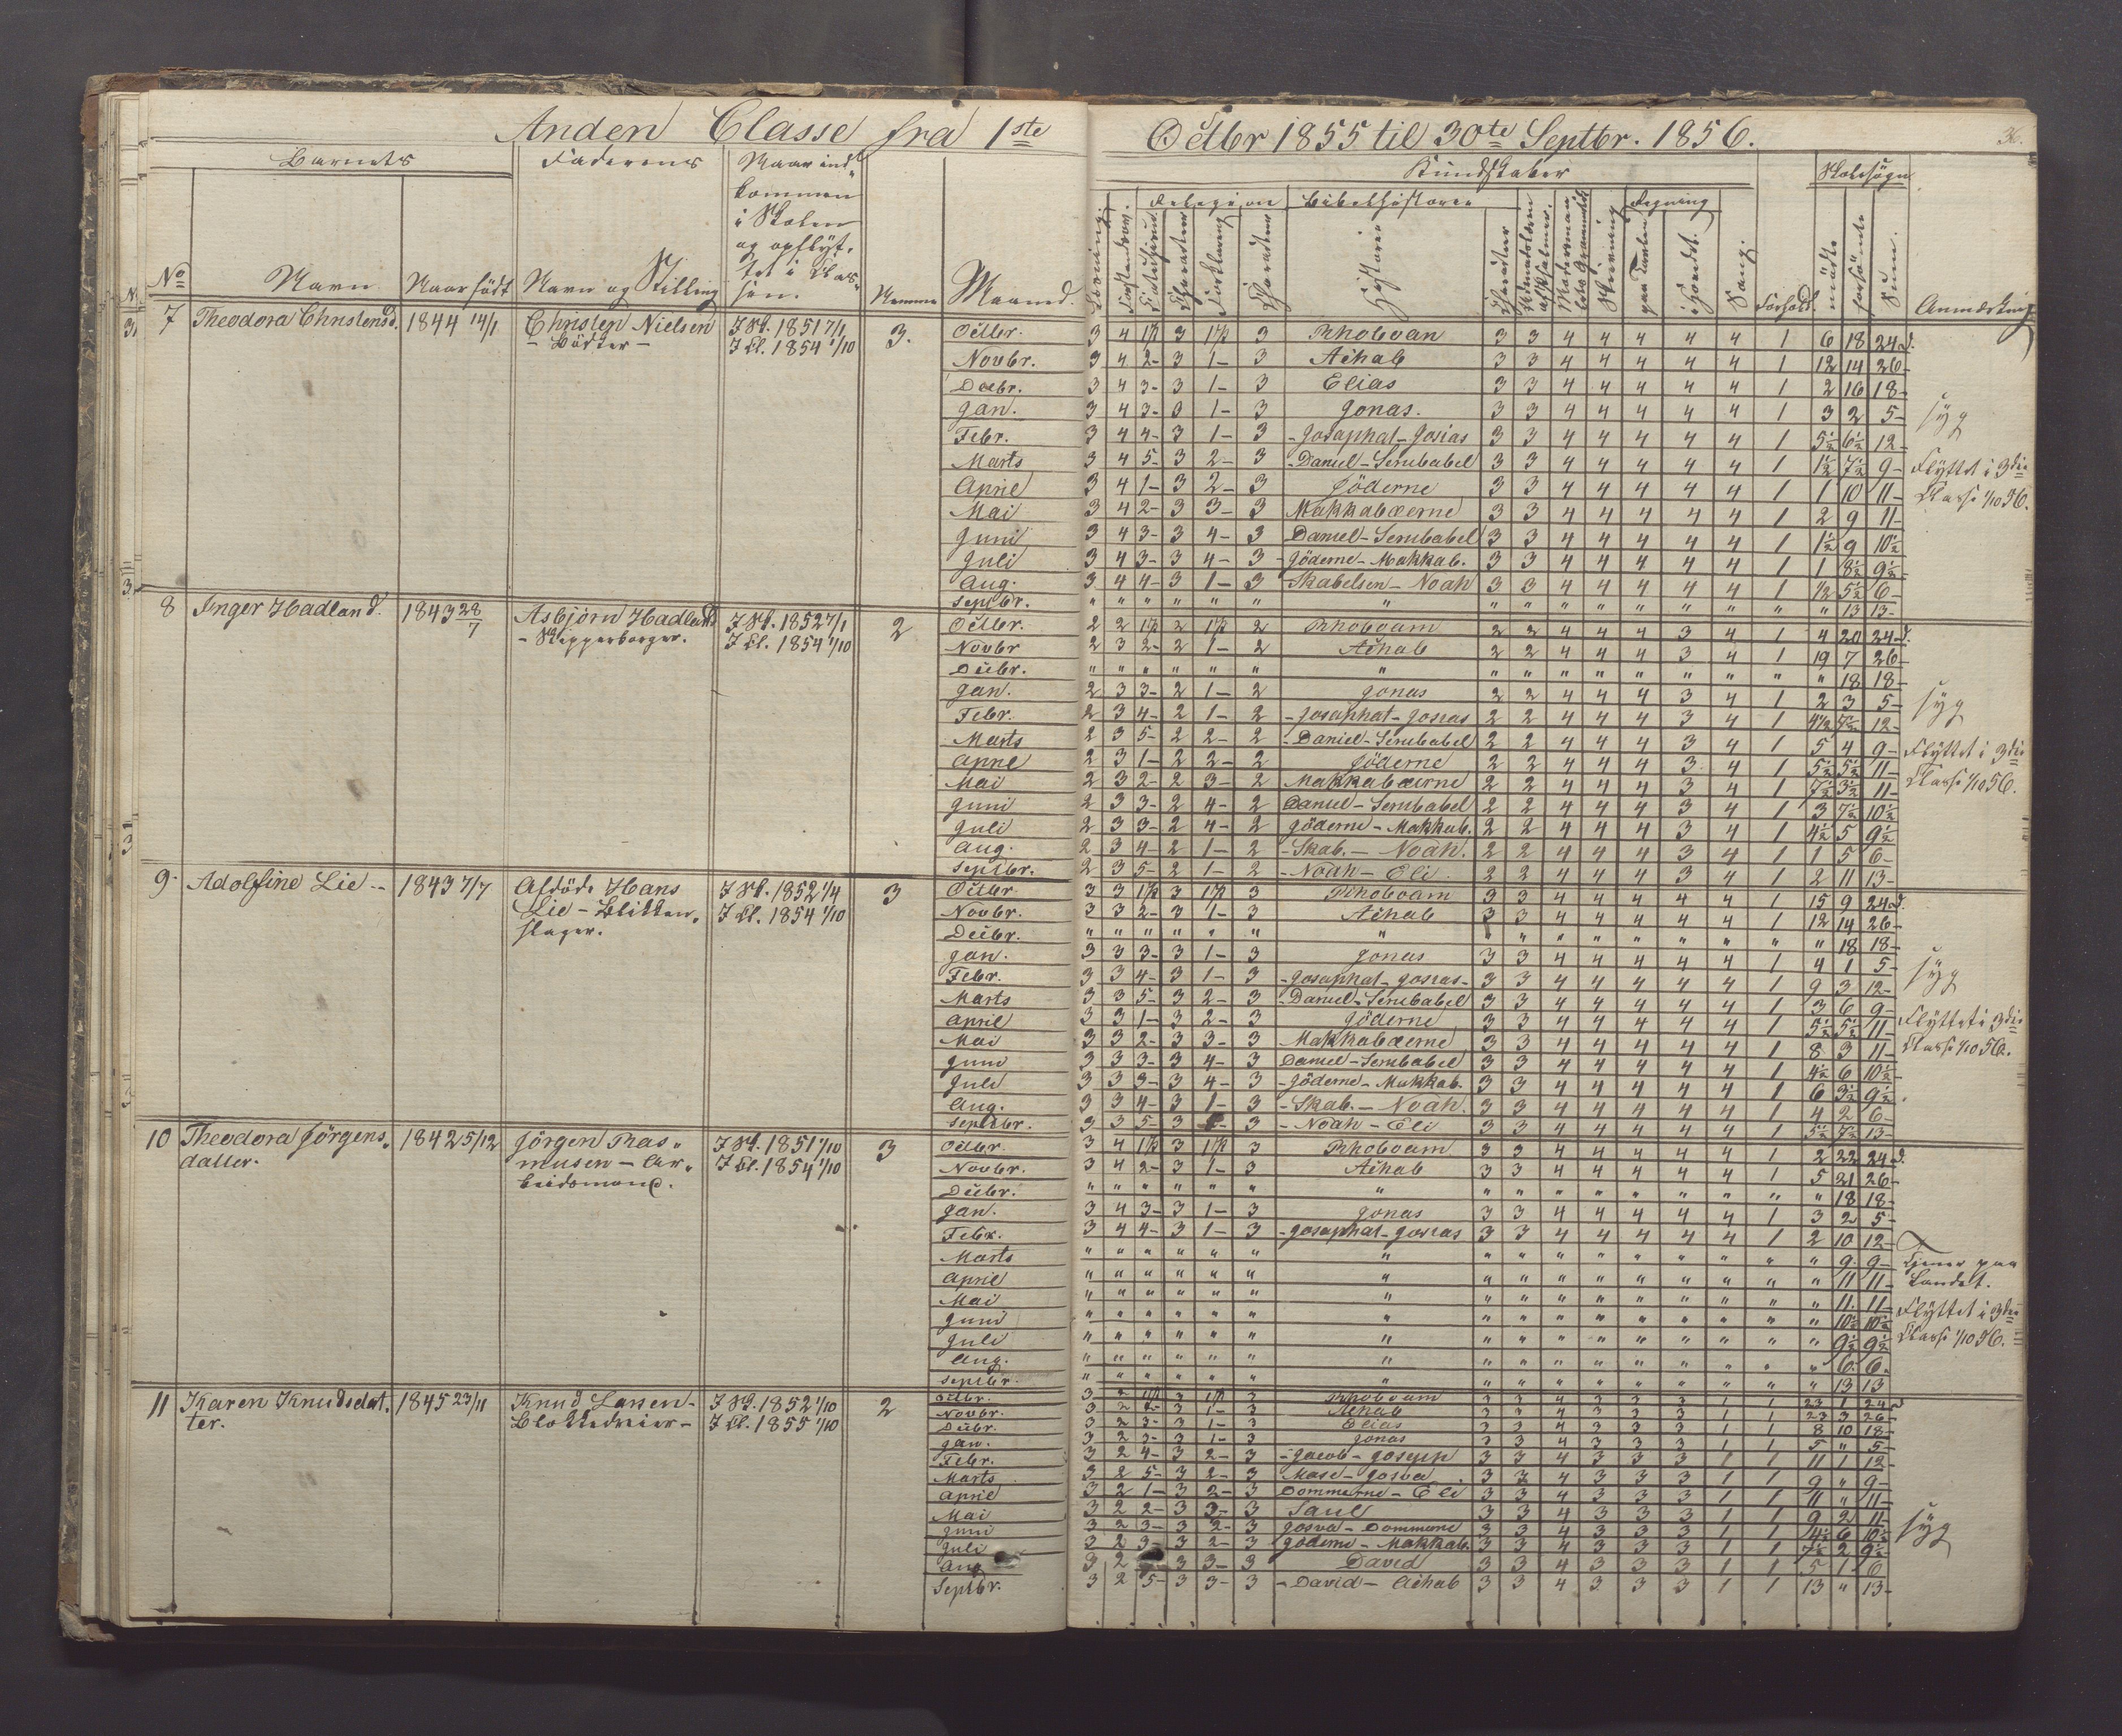 Anden Classe fra 1ste Octbr 1855 til 30te Septbr. 1856.
36.
Barnets Faderens Naar ind-
kommen
i Skolen
og opflyt-
tet i Clas-
sen.
No Navn Naar født Navn og Stilling Nemme Maaned.
Kundskaber Skolesøgn
Religion Bibelhistorie Regning
Historie Sang. Forhold. mødte forsømte Sum. Anmærkning
7 Theodora Christensd. 1844 14/1 Christen Nielsen I Sk. 1851 7/1 3.
- Bødker - I Cl. 1854 1/10
Octbr. 3 4 1ste P 3 1ste P 3 Rhoboam 3 3 4 4 4 4 4 1 6 18 24 d.
Novbr. 3 4 2- 3 1- 3 Achab 3 3 4 4 4 4 4 1 12 14 26-
Decbr. 3 4 3- 3 1- 3 Elias 3 3 4 4 4 4 4 1 2 16 18-
Jan. 3 4 3- 3 1- 3 Jonas. 3 3 4 4 4 4 4 1 3 2 5- syg
Febr. 3 4 4- 3 1- 3 - Josaphat - Josias 3 3 4 4 4 4 4 1 5½ 6½ 12-
Marts 3 4 5- 3 2- 3 - Daniel - Serubabel 3 3 4 4 4 4 4 1 1½ 7½ 9- Flyttet i 3die
April 3 4 1- 3 2- 3 Jöderne 3 3 4 4 4 4 4 1 1 10 11- Classe 1/10 56.
Mai 3 4 2- 3 3- 3 Makkabæerne 3 3 4 4 4 4 4 1 2 9 11-
Juni 3 4 3- 3 4- 3 Daniel - Serubabel 3 3 4 4 4 4 4 1 1½ 9 10½
Juli 3 4 3- 3 4- 3 - Jöderne - Makkab. 3 3 4 4 4 4 4 1 1 8½ 9½
Aug. 3 4 4- 3 1- 3 Skabelsen - Noah 3 3 4 4 4 4 4 1 ½ 5½ 6-
Septbr. " " " " " " " " " " " " " " " " 13 13-
8 Inger Hadland. 1843 28/7 Asbjørn Hadland I Sk. 1852 7/1 2
- Skipperborger. I Cl. 1854 1/10
Octbr. 2 2 1ste P 2 1ste P 2 Rhoboam 2 2 4 4 4 3 4 1 4 20 24 d.
Novbr 2 3 2- 2 1- 2 Achab 2 2 4 4 4 3 4 1 19 7 26-
Decbr. " " " " " " " " " " " " " " " " 18 18-
Jan. 2 3 3- 2 1- 2 Jonas 2 2 4 4 4 3 4 1 2 3 5- syg
Febr. 2 3 4- 2 1- 2 - Josaphat - Josias 2 2 4 4 4 3 4 1 4½ 7½ 12-
Marts 2 3 5- 2 2- 2 - Daniel - Serubabel 2 2 4 4 4 3 4 1 5 4 9- Flyttet i 3die
April 2 3 1- 2 2- 2 Jöderne 2 2 4 4 4 3 4 1 5½ 5½ 11- Classe 1/10 56.
Mai 2 3 2- 2 3- 2 Makkabæerne 2 2 4 4 4 3 4 1 7½ 3½ 11-
Juni 2 3 3- 2 4- 2 Daniel - Serubabel 2 2 4 4 4 3 4 1 3 7½ 10½
Juli 2 3 3- 2 4- 2 Jöderne - Makkab. 2 2 4 4 4 3 4 1 4½ 5 9½
Aug. 2 3 4- 2 1- 2 - Skab. - Noah. 2 2 4 4 4 3 4 1 1 5 6-
Septbr. 2 3 5- 2 1- 2 - Noah - Eli 2 2 4 4 4 3 4 1 2 11 13-
9. Adolfine Lie - 1843 7/7 Afdøde Hans I Sk. 1852 1/4 3
Lie - Blikken- I Cl. 1854 1/10
slager.
Octbr. 3 3 1ste P 3 1ste P 3 Rhoboam 3 3 4 4 4 4 4 1 15 9 24 d.
Novbr. 3 3 2- 3 1- 3 Achab 3 3 4 4 4 4 4 1 12 14 26-
Decbr. " " " " " " " " " " " " " " " " 18 18-
Jan. 3 3 3- 3 1- 3 Jonas 3 3 4 4 4 4 4 1 4 1 5- syg
Febr. 3 3 4- 3 1- 3 - Josaphat - Josias - 3 3 4 4 4 4 4 1 9 3 12-
Marts 3 3 5- 3 2- 3 - Daniel - Serubabel 3 3 4 4 4 4 4 1 3 6 9-
April 3 3 1- 3 2- 3 Jöderne 3 3 4 4 4 4 4 1 5½ 5½ 11- Flyttet i 3die
Mai 3 3 2- 3 3- 3 Makkabæerne 3 3 4 4 4 4 4 1 8 3 11- Classe 1/10 56.
Juni 3 3 3- 3 4- 3 Daniel - Serubabel 3 3 4 4 4 4 4 1 4½ 6 10½
Juli 3 3 3- 3 4- 3 - Jöderne - Makkab. 3 3 4 4 4 4 4 1 6 3½ 9½
Aug. 3 3 4- 3 1- 3 - Skab. - Noah. 3 3 4 4 4 4 4 1 4 2 6-
Septbr. 3 3 5- 3 - 3 - Noah - Eli 3 3 4 4 4 4 4 1 5½ 7½ 13-
10 Theodora Jörgens- 1842 5/12 Jörgen Ras- I Sk. 1851 1/10 3
datter. musen - Ar- I Cl. 1854 1/10
beidsmand.
Octbr. 3 4 1ste P 3 1ste P 3 Rhoboam 3 3 4 4 4 4 4 1 2 22 24 d.
Novbr. 3 4 2- 3 1- 3 Achab 3 3 4 4 4 4 4 1 5 21 26-
Decbr. " " " " " " " " " " " " " " " " 18 18-
Jan. 3 4 3- 3 1- 3 Jonas 3 3 4 4 4 4 4 1 3 2 5-
Febr. 3 4 4- 3 1- 3 - Josaphat - Josias 3 3 4 4 4 4 4 1 2 10 12-
Marts " " " " " " " " " " " " " " " " 9. 9- Tjener paa
April " " " " " " " " " " " " " " " " 11 11- Landet.
Mai " " " " " " " " " " " " " " " " 11. 11- Flyttet i 3die
Juni " " " " " " " " " " " " " " " " 10½ 10½ Classe 1/10 56.
Juli " " " " " " " " " " " " " " " " 9½ 9½
Aug. " " " " " " " " " " " " " " " " 6. 6.
Septbr. " " " " " " " " " " " " " " " " 13 13
11 Karen Knudsdat- 1845 23/11 Knud Larsen - I Sk. 1852 1/10 2
ter. Blokkedreier - I Cl. 1855 1/10
Octbr. 3 2 1ste P 3 1ste P 3 Rhoboam 3 3 4 3 3 3 1 1 23 1 24 d
Novbr. 3 2 2- 3 1- 3 Achab 3 3 4 3 3 3 1 1 23 3 26-
Decbr. 3 2 3- 3 1- 3 Elias 3 3 4 3 3 3 1 1 8 10 18-
Jan. 3 2 3- 3 1- 3 Jonas 3 3 4 3 3 3 1 1 5 " 5-
Febr. 3 2 4- 3 2- 3 - Jacob - Joseph 3 3 4 3 3 3 1 1 11 1 12-
Marts 3 2 5- 3 2- 3 Mose - Josva 3 3 4 3 3 3 1 1 9 " 9-
April 3 2 1- 3 2- 3 Dommerne - Eli 3 3 4 3 3 3 1 1 11 " 11-
Mai 3 2 2- 3 3- 3 Saul 3 3 4 3 3 3 1 1 9 2 11-
Juni 3 2 3- 3 2- 3 Josva - Dommerne 3 3 4 3 3 3 1 1 4½ 6 10½ syg
Juli 3 2 3- 3 2- 3 Jöderne - Makkab. 3 3 4 3 3 3 1 1 7½ 2 9½
Aug 3 2 3 3- 3 David 3 3 4 3 3 3 1 1 5 1 6
Septbr. 3 2 5- 3 3- 3 - David - Achab 3 3 4 3 3 3 1 1 13 " 13-